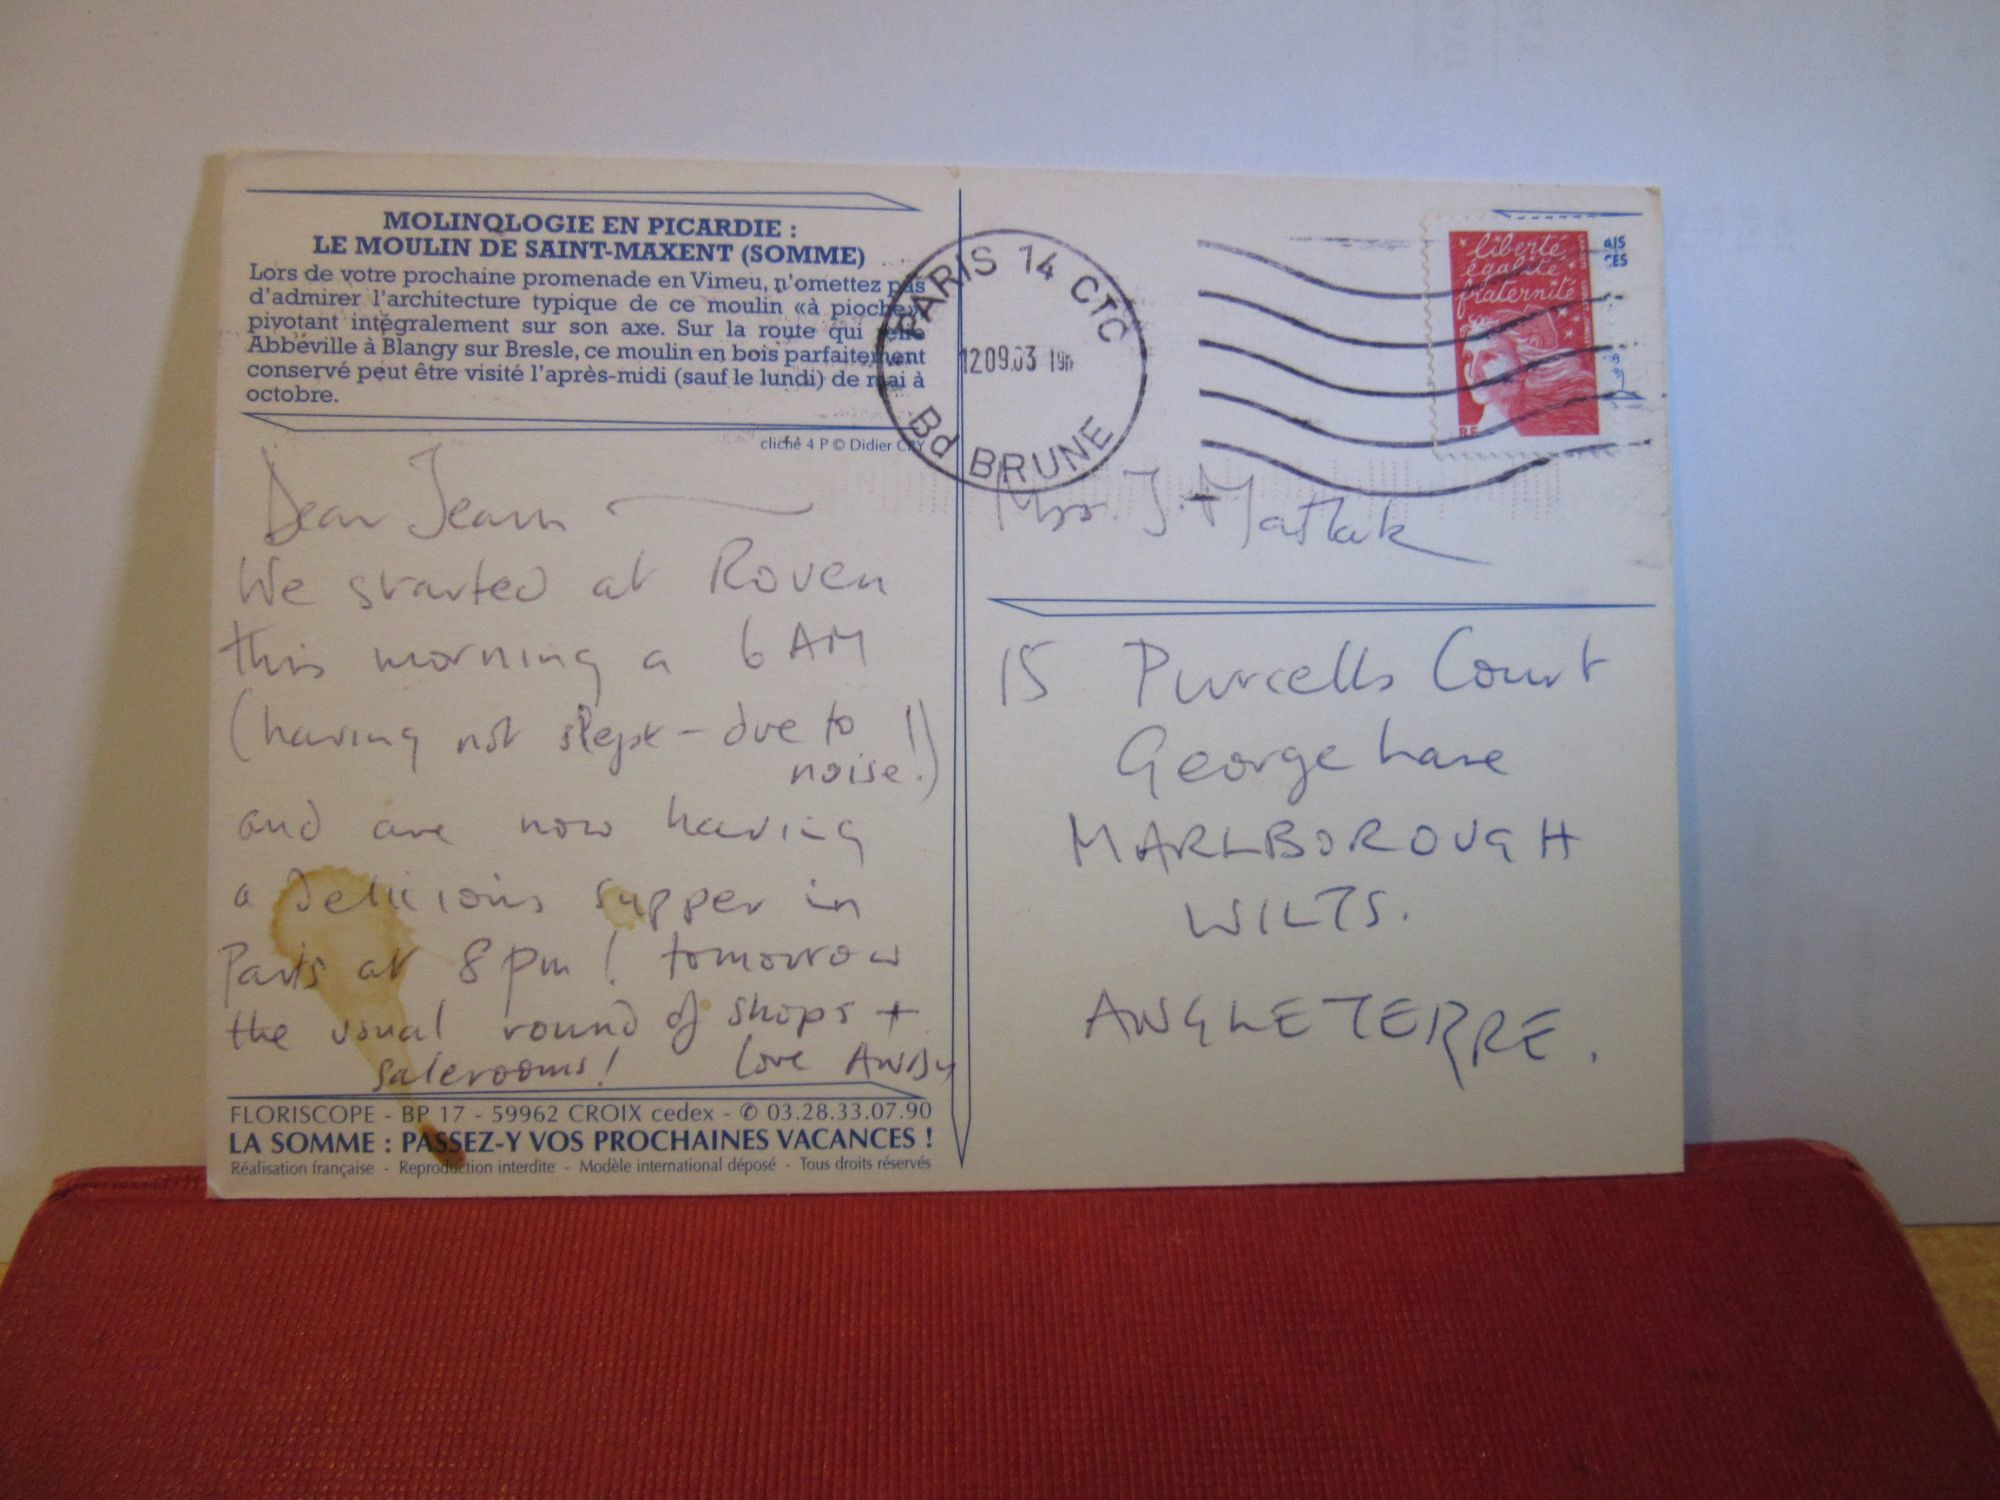 MOLINOLOGIE EN PICARDIE :
LE MOULIN DE SAINT-MAXENT (SOMME)
Lors de votre prochaine promenade en Vimeu, n'omettez pas
d'admirer l'architecture typique de ce moulin «à pioche»,
pivotant intégralement sur son axe. Sur la route qui relie
Abbeville à Blangy sur Bresle, ce moulin en bois parfaitement
conservé peut être visité l'après-midi (sauf le lundi) de mai à
octobre.
cliché 4 P © Didier CRY
Dear Jean
We started at Rouen
this morning a 6 AM
(having not slept - due to
noise!!)
and are now having
a delicious supper in
Paris at 8 pm! tomorrow
the usual round of shops +
salerooms! Love ANDy
FLORISCOPE - BP 17 - 59962 CROIX cedex - ✆ 03.28.33.07.90
LA SOMME : PASSEZ-Y VOS PROCHAINES VACANCES !
Réalisation française - Reproduction interdite - Modèle international déposé - Tous droits réservés
PARIS 14 CTC
12 09.03 19H
Bd BRUNE
liberté
égalité
fraternité
RF
Mrs. J. Matlak
15 Purcells Court
George Lane
MARLBOROUGH
WILTS.
ANGLETERRE.